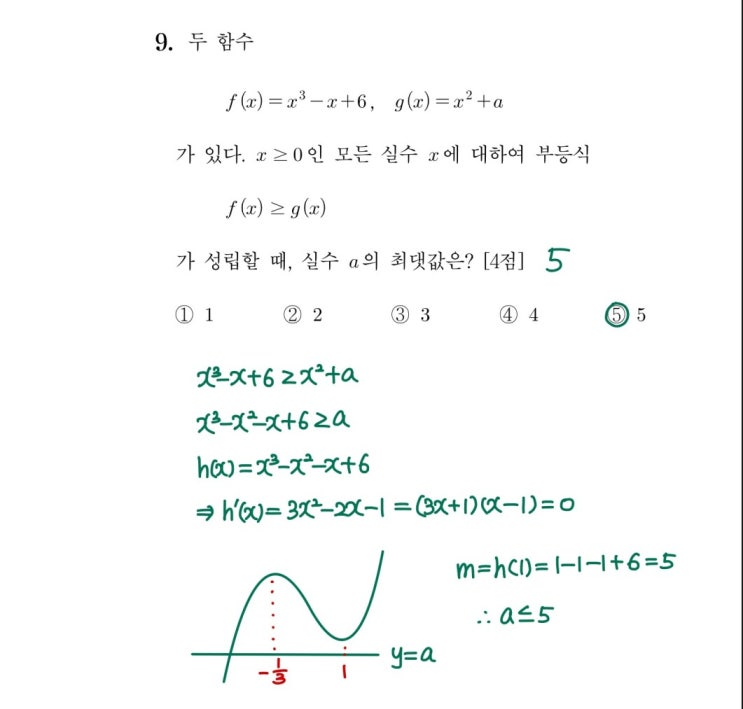 9. 두 함수
f(x)=x³−x+6, g(x)=x²+a
가 있다. x≥0인 모든 실수 x에 대하여 부등식
f(x)≥g(x)
가 성립할 때, 실수 a의 최댓값은? [4점] 5
① 1 ② 2 ③ 3 ④ 4 ⑤ 5
x³−x+6≥x²+a
x³−x²−x+6≥a
h(x)=x³−x²−x+6
⇒ h′(x)=3x²−2x−1=(3x+1)(x−1)=0
m=h(1)=1−1−1+6=5
∴ a≤5
y=a
−1/3 1